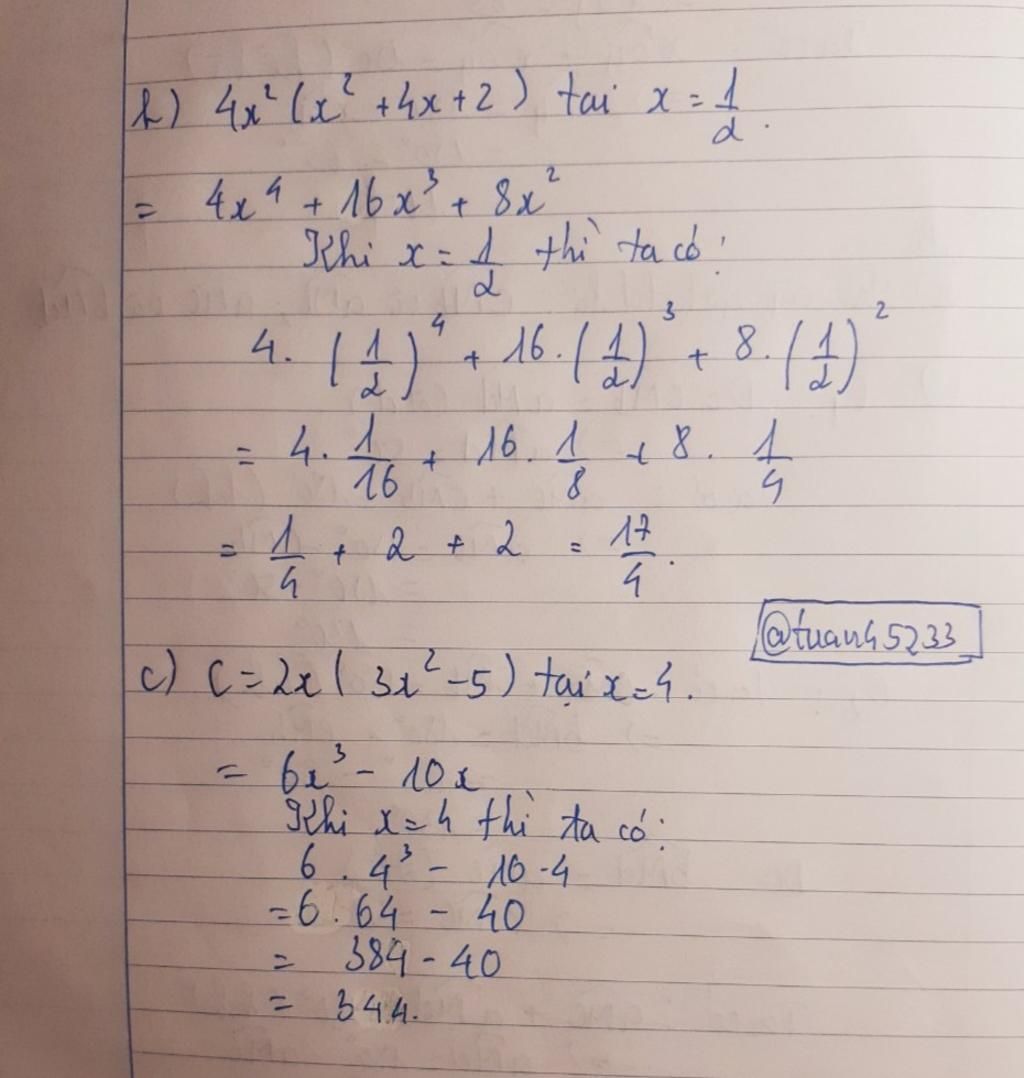 b) 4x² (x² + 4x + 2) tai x = 1/2.
= 4x⁴ + 16x³ + 8x²
Khi x = 1/2 thì ta có:
4. (1/2)⁴ + 16. (1/2)³ + 8. (1/2)²
= 4. 1/16 + 16. 1/8 + 8. 1/4
= 1/4 + 2 + 2 = 17/4.
@tuan45233
c) C = 2x (3x² - 5) tại x = 4.
= 6x³ - 10x
Khi x = 4 thì ta có:
6 . 4³ - 10 . 4
= 6 . 64 - 40
= 384 - 40
= 344.